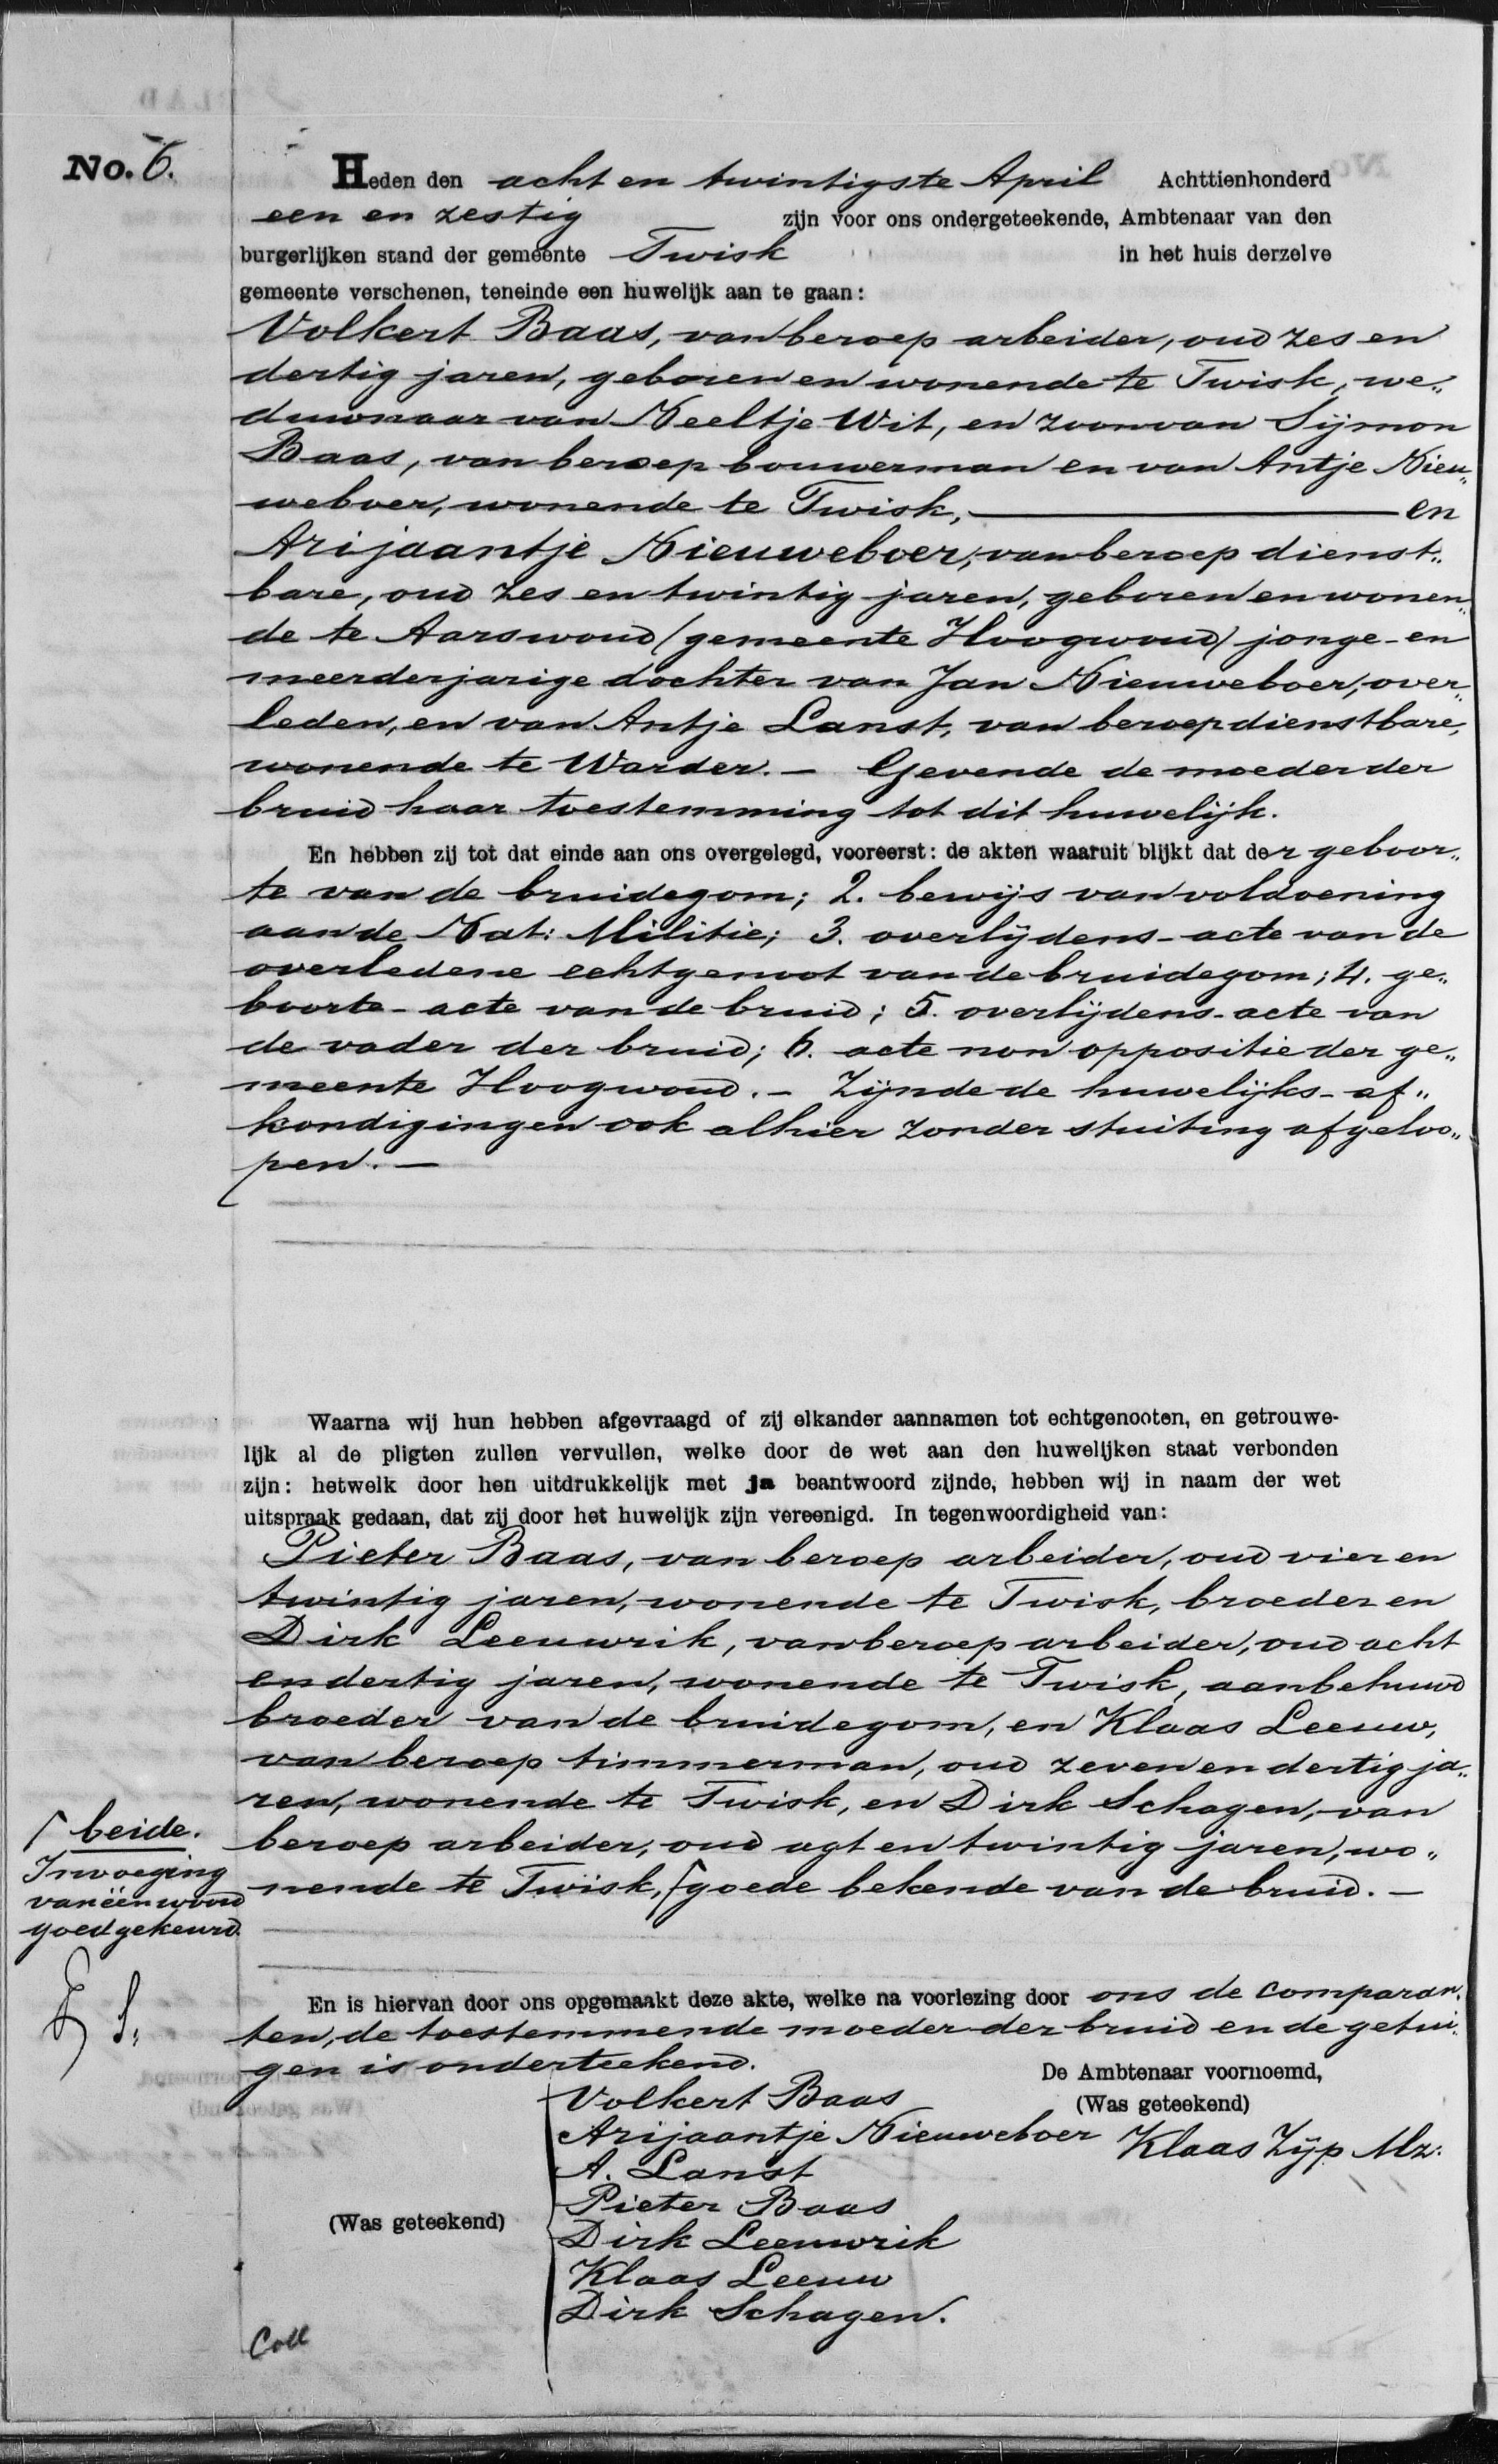 No. 6.
Heden den acht en twintigste April Achttienhonderd
een en zestig zijn voor ons ondergeteekende, Ambtenaar van den
burgerlijken stand der gemeente Twisk in het huis derzelve
gemeente verschenen, teneinde een huwelijk aan te gaan:
Volkert Baas, van beroep arbeider, oud zes en
dertig jaren, geboren en wonende te Twisk, we„
duwnaar van Neeltje Wit, en zoon van Sijmon
Baas, van beroep bouwerman en van Antje Nieu„
weboer, wonende te Twisk, en
Arijaantje Nieuweboer, van beroep dienst„
bare, oud zes en twintig jaren, geboren en wonen„
de te Aarswoud (gemeente Hoogwoud) jonge- en
meerderjarige dochter van Jan Nieuweboer, over„
leden, en van Antje Lanst, van beroep dienstbare,
wonende te Warder. — Gevende de moeder der
bruid haar toestemming tot dit huwelijk.
En hebben zij tot dat einde aan ons overgelegd, vooreerst: de akten waaruit blijkt dat der geboor„
te van de bruidegom; 2. bewijs van voldoening
aan de Nat: Militie; 3. overlijdens-acte van de
overledene echtgenoot van de bruidegom; 4. ge„
boorte-acte van de bruid; 5. overlijdens-acte van
de vader der bruid; 6. acte non oppositie der ge„
meente Hoogwoud. — Zijnde de huwelijks-af„
kondigingen ook alhier zonder stuiting afgeloo„
pen. —
Waarna wij hun hebben afgevraagd of zij elkander aannamen tot echtgenooten, en getrouwe-
lijk al de pligten zullen vervullen, welke door de wet aan den huwelijken staat verbonden
zijn: hetwelk door hen uitdrukkelijk met ja beantwoord zijnde, hebben wij in naam der wet
uitspraak gedaan, dat zij door het huwelijk zijn vereenigd. In tegenwoordigheid van:
Pieter Baas, van beroep arbeider, oud vier en
twintig jaren, wonende te Twisk, broeder en
Dirk Leeuwrik, van beroep arbeider, oud acht
en dertig jaren, wonende te Twisk, aanbehuwd
broeder van de bruidegom, en Klaas Leeuw,
van beroep timmerman, oud zeven en dertig ja„
ren, wonende te Twisk, en Dirk Schagen, van
beroep arbeider, oud agt en twintig jaren, wo„
nende te Twisk, ⌈ goede bekende van de bruid. —
⌈ beide.
Invoeging
van één woord
goedgekeurd.
En is hiervan door ons opgemaakt deze akte, welke na voorlezing door ons de comparan„
ten, de toestemmende moeder der bruid en de getui„
gen is onderteekend.
De Ambtenaar voornoemd,
(Was geteekend)
Klaas Zijp Mz:
(Was geteekend)
Volkert Baas
Arijaantje Nieuweboer
A. Lanst
Pieter Baas
Dirk Leeuwrik
Klaas Leeuw
Dirk Schagen.
Coll